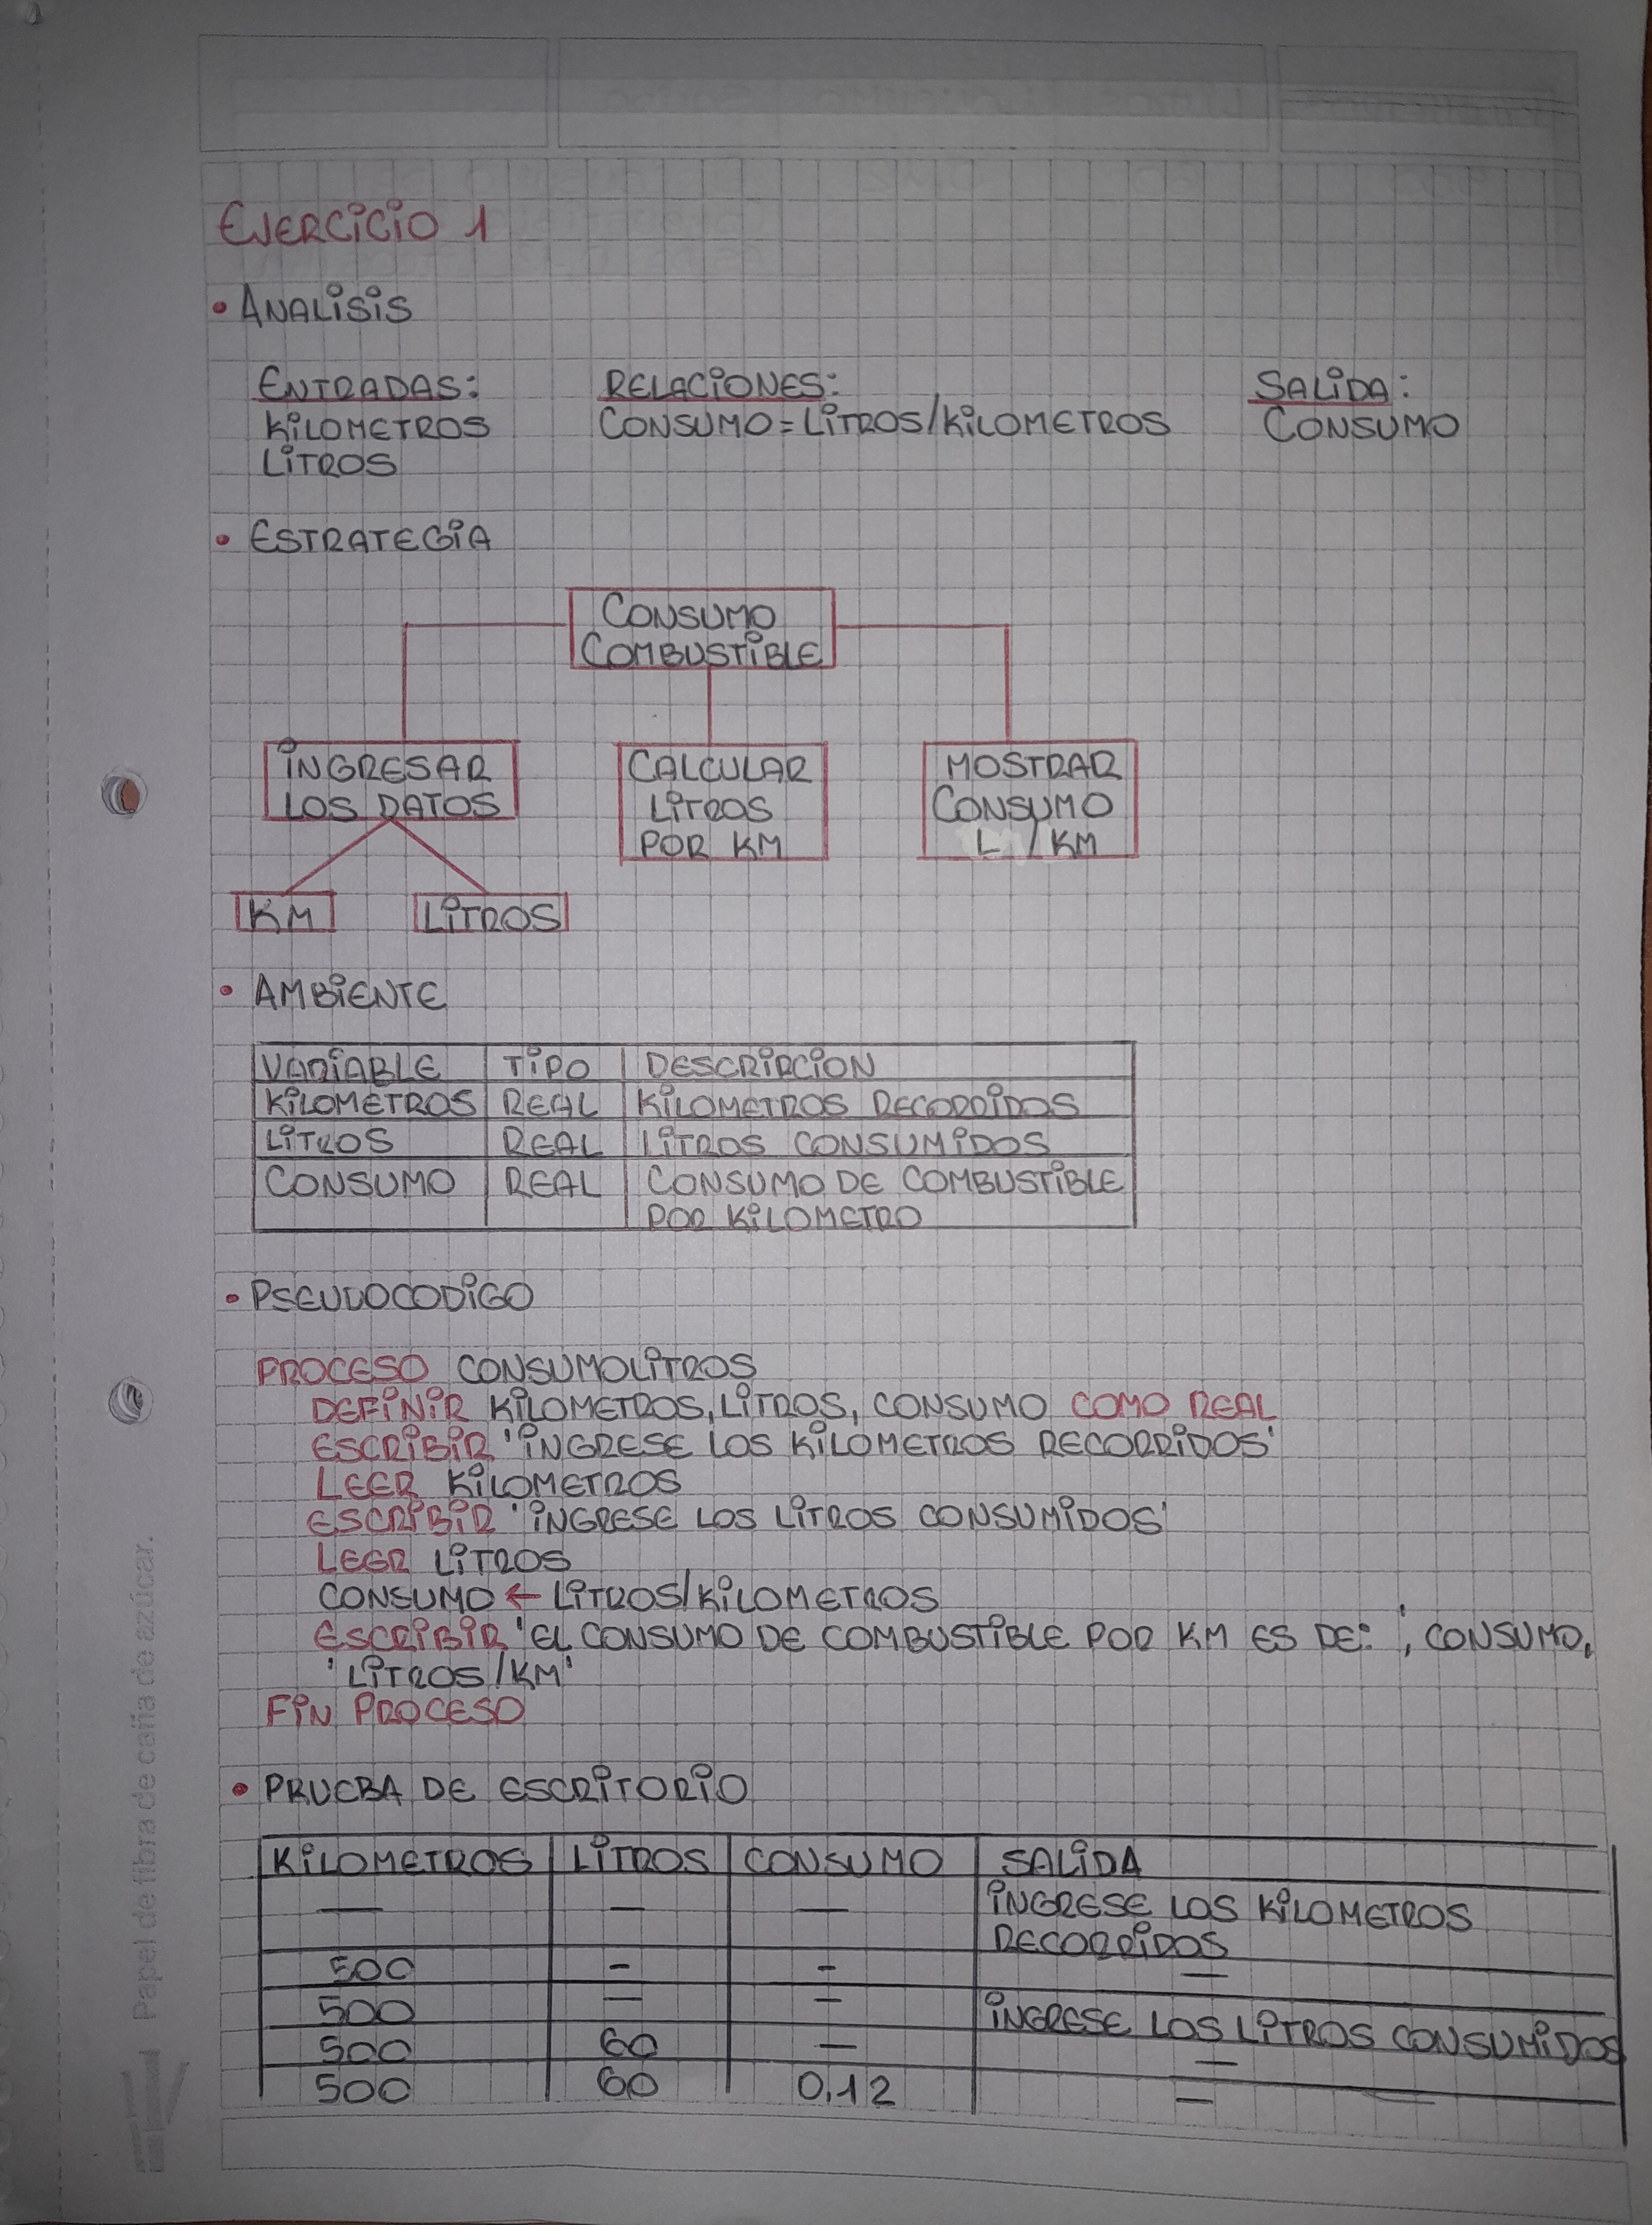 EJERCICIO 1
• ANALISIS
ENTRADAS: RELACIONES: SALIDA:
KILOMETROS CONSUMO=LITROS/KILOMETROS CONSUMO
LITROS
• ESTRATEGIA
CONSUMO
COMBUSTIBLE
INGRESAR
LOS DATOS
CALCULAR
LITROS
POR KM
MOSTRAR
CONSUMO
L / KM
KM LITROS
• AMBIENTE
VARIABLE TIPO DESCRIPCION
KILOMETROS REAL KILOMETROS RECORRIDOS
LITROS REAL LITROS CONSUMIDOS
CONSUMO REAL CONSUMO DE COMBUSTIBLE
POR KILOMETRO
• PSEUDOCODIGO
PROCESO CONSUMOLITROS
DEFINIR KILOMETROS, LITROS, CONSUMO COMO REAL
ESCRIBIR 'INGRESE LOS KILOMETROS RECORRIDOS'
LEER KILOMETROS
ESCRIBIR 'INGRESE LOS LITROS CONSUMIDOS'
LEER LITROS
CONSUMO ← LITROS/KILOMETROS
ESCRIBIR 'EL CONSUMO DE COMBUSTIBLE POR KM ES DE: ', CONSUMO,
'LITROS/KM'
FIN PROCESO
• PRUEBA DE ESCRITORIO
KILOMETROS LITROS CONSUMO SALIDA
— — — INGRESE LOS KILOMETROS
RECORRIDOS
500 - - —
500 — - INGRESE LOS LITROS CONSUMIDOS
500 60 — —
500 60 0,12 —
Papel de fibra de caña de azúcar.